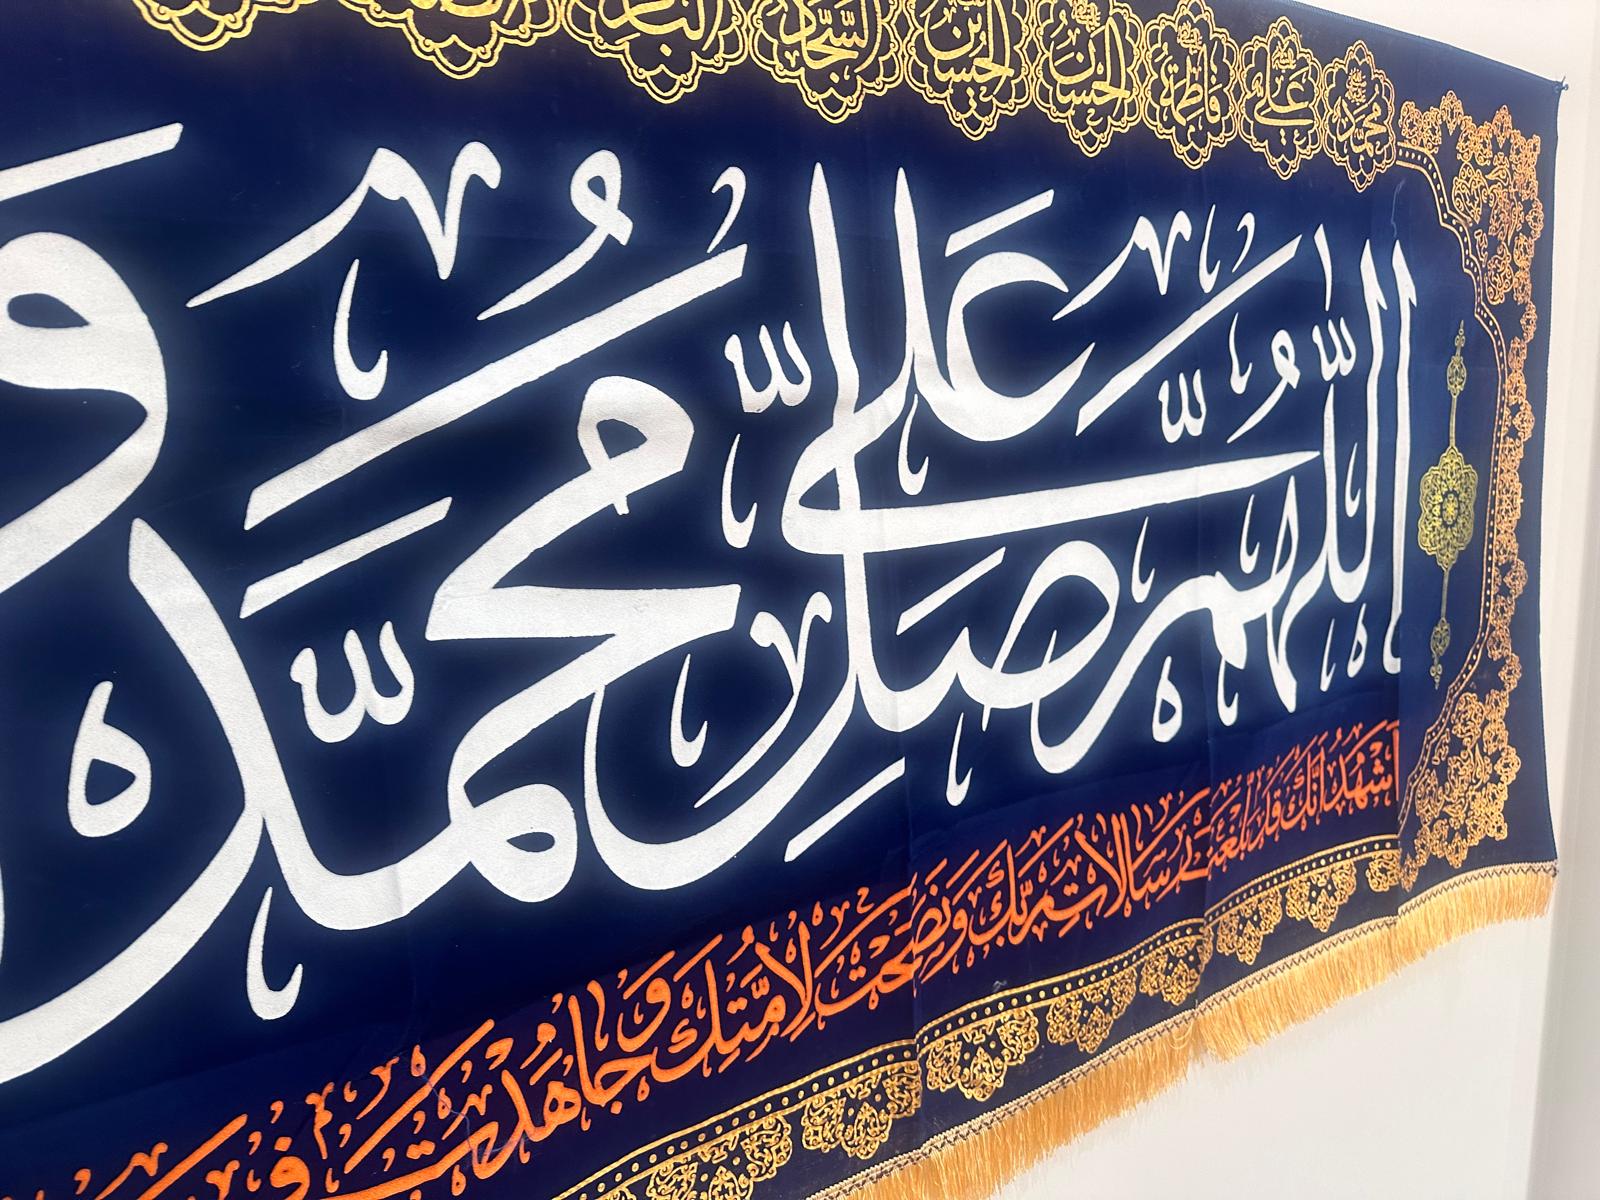 محمد علي فاطمة الحسن الحسين السجاد الباقر
اللّٰهُمَّ صَلِّ عَلَىٰ مُحَمَّدٍ وَ
اَشْهَدُ اَنَّكَ قَدْ بَلَّغْتَ رِسَالَاتِ رَبِّكَ وَ نَصَحْتَ لِاُمَّتِكَ وَ جَاهَدْتَ فِي